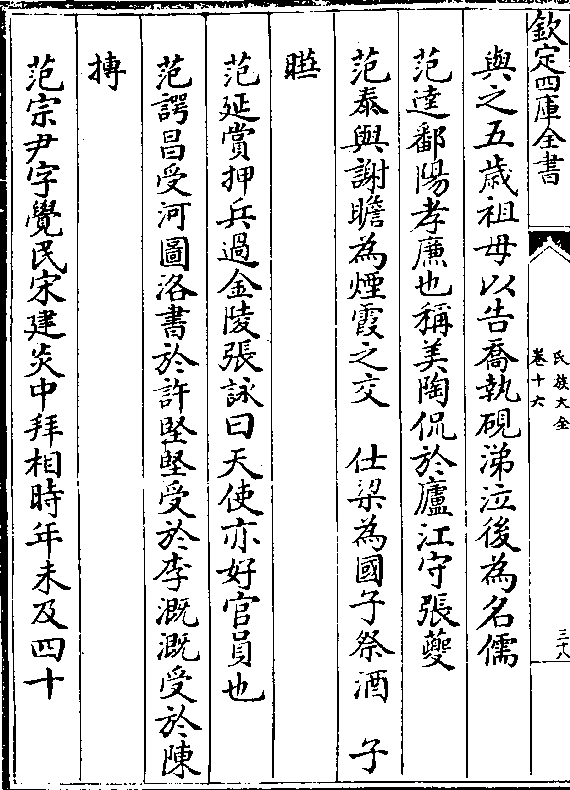 欽定四庫全書
氏族大全
卷十六
三十八
與之五歲祖母以告喬執硯涕泣後為名儒
范逵鄱陽孝廉也稱美陶侃於廬江守張夔
范泰與謝瞻為煙霞之交　仕梁為國子祭酒　子
㬢
范延賞押兵過金陵張詠曰天使亦好官員也
范諤昌受河圖洛書於許堅堅受於李溉溉受於陳
摶
范宗尹字覺民宋建炎中拜相時年未及四十